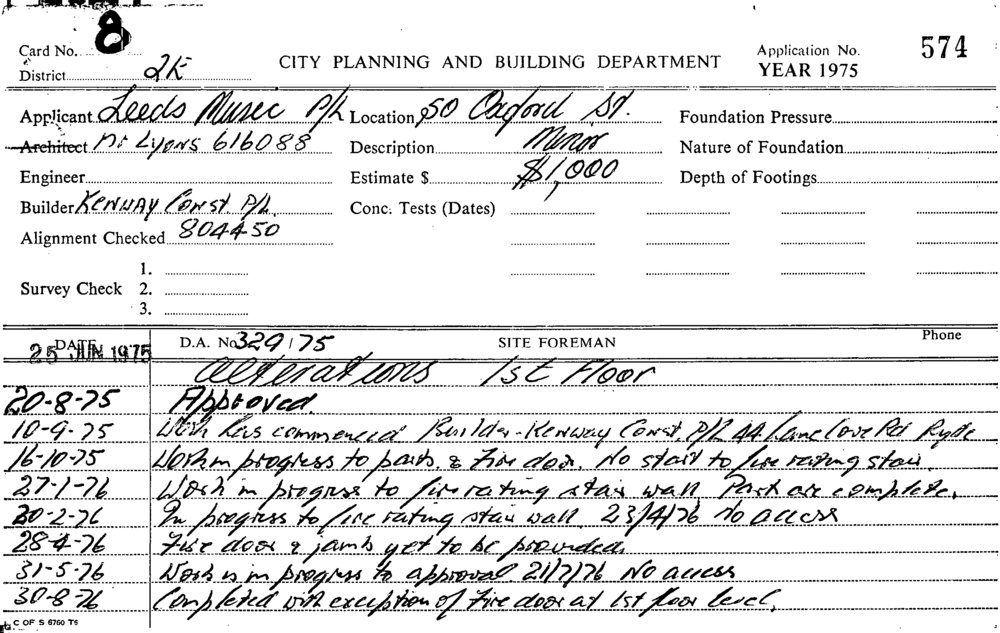 Card No. 8
District 2K
CITY PLANNING AND BUILDING DEPARTMENT
Application No. 574
YEAR 1975
Applicant Leeds Music P/L Location 50 Oxford St. Foundation Pressure
Architect Mr Lyons 616088 Description Minor Nature of Foundation
Engineer Estimate $ $1,000 Depth of Footings
Builder Kenway Const. P/L. Conc. Tests (Dates)
Alignment Checked 804450
1.
Survey Check 2.
3.
DATE D.A. No 329/75 SITE FOREMAN Phone
25 JUN 1975
Alterations 1st Floor
20-8-75 Approved.
10-9-75 Work has commenced Builder-Kenway Const. P/L 44 Lane Cove Rd Ryde
16-10-75 Work in progress to parts. & Fire door. No start to fire rating stair.
27-1-76 Work in progress to fire rating stair wall Part are complete.
20-2-76 In progress to fire rating stair wall 23/4/76 no access
28-4-76 Fire door & jamb yet to be provided.
31-5-76 Work is in progress to approval 21/7/76 No access
30-8-76 Completed with exception of Fire door at 1st floor level.
C OF S 6760 T6